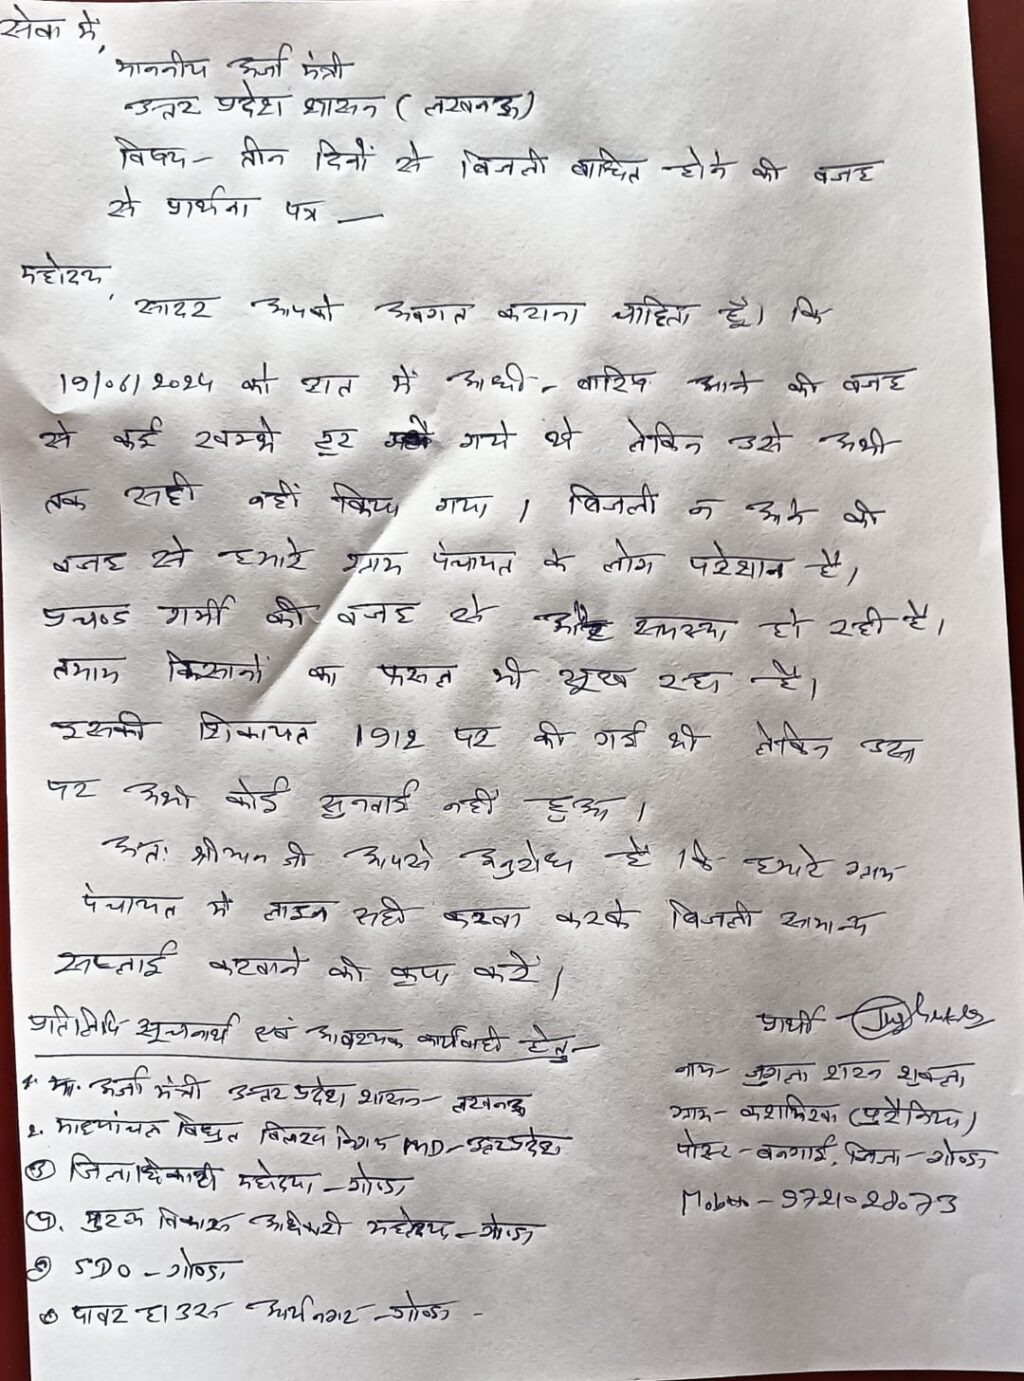 सेवा में,
माननीय ऊर्जा मंत्री
उत्तर प्रदेश शासन (लखनऊ)
विषय- तीन दिनों से बिजली बाधित होने की वजह
से प्रार्थना पत्र —
महोदय,
सादर आपको अवगत कराना चाहिता हूँ। कि
19/06/2024 को रात में आधी-बारिष आने की वजह
से कई खम्भे टूट गये थे लेकिन उसे अभी
तक सही नहीं किया गया। बिजली न आने की
वजह से हमारे ग्राम पंचायत के लोग परेशान है।
प्रचण्ड गर्मी की वजह से और समस्या हो रही है।
तमाम किसानों का फसल भी सूख रहा है।
इसकी शिकायत 1912 पर की गई थी लेकिन उस
पर अभी कोई सुनवाई नहीं हुआ।
अतः श्रीमान जी आपसे अनुरोध है कि हमारे ग्राम
पंचायत में लाइन सही करवा करके बिजली सामान्य
सप्लाई करवाने की कृपा करें।
प्रतिलिपि सूचनार्थ एवं आवश्यक कार्यवाही हेतु-
प्रार्थी
1. मा. ऊर्जा मंत्री उत्तर प्रदेश शासन- लखनऊ
2. मध्यांचल विद्युत वितरण निगम MD-उत्तर प्रदेश
③ जिलाधिकारी महोदया-गोण्डा
④. मुख्य विकास अधिकारी महोदय-गोण्डा
⑤ SDO-गोण्डा
⑥ पावर हाउस आर्यनगर-गोण्डा -
नाम- जुगल शरन शुक्ला
ग्राम-
पोस्ट-बनगाई, जिला-गोण्डा